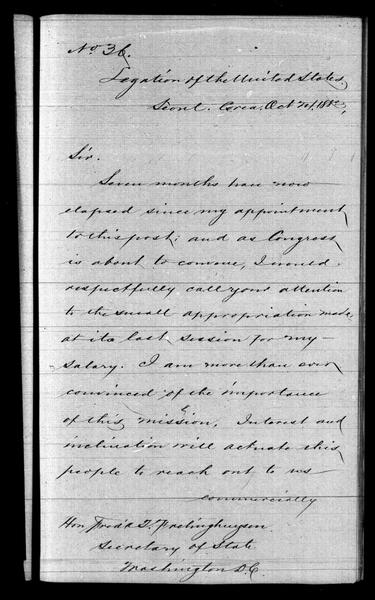 No 36.
Legation of the United States.
Seoul. Corea. Oct 1883,
Sir.
Seven months have now
elapsed since my appointment
to this post; and as Congress
is about to convene, I would
respectfully call your attention
to the small appropriation made
at its last session for my
salary. I am more than ever
convinced of the importance
of this mission. Interest and
inclination will actuate this
people to reach out to us
commercially
Hon Fred'k T. Frelinghuysen
Secretary of State
Washington D.C.